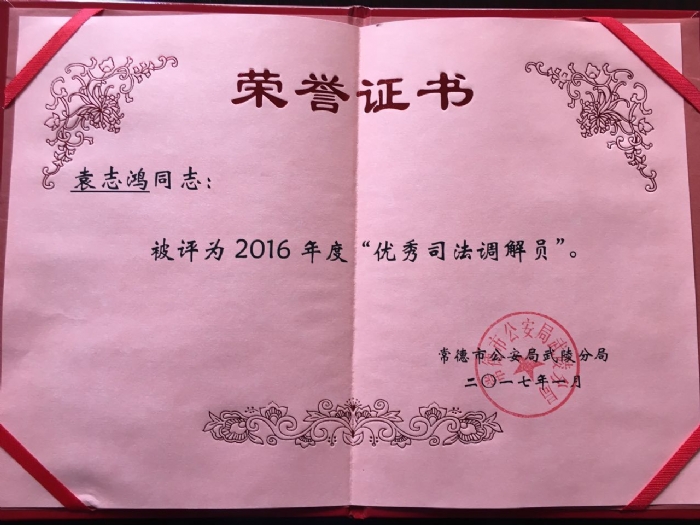 荣誉证书
袁志鸿同志：
被评为2016年度“优秀司法调解员”。
常德市公安局武陵分局
二〇一七年一月
常德市公安局武陵分局